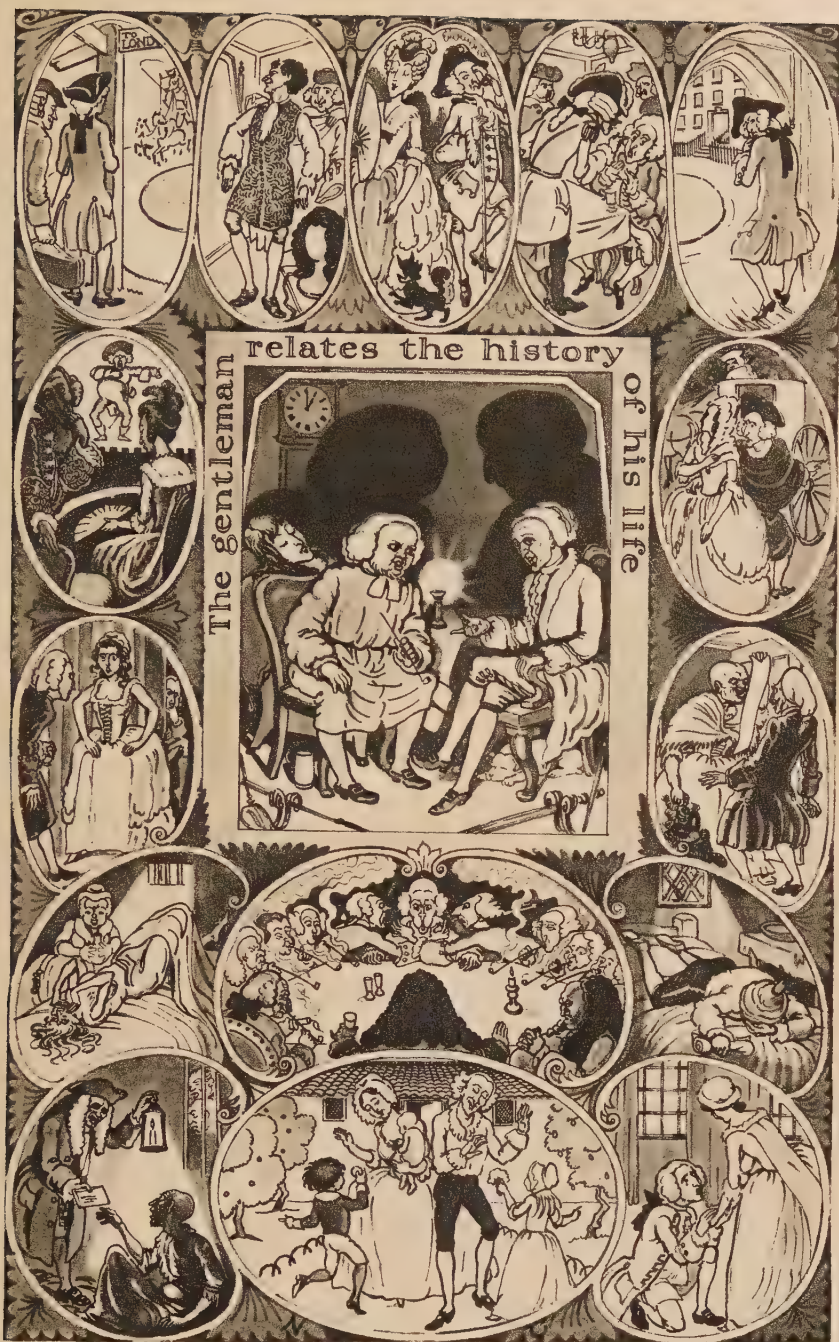 TO
LOND
The gentleman
relates the history
of his life